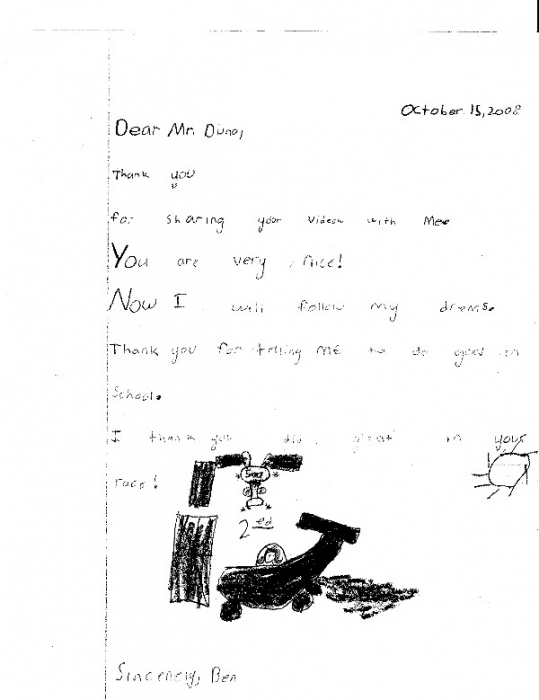 October 15, 2008
Dear Mr. Duno,
Thank you
for sharing your Videos with Me.
You are very nice!
Now I will follow my drems.
Thank you for telling me to do good in
School.
I thank you did great in your
race!
2 ed
Sincerely, Ben